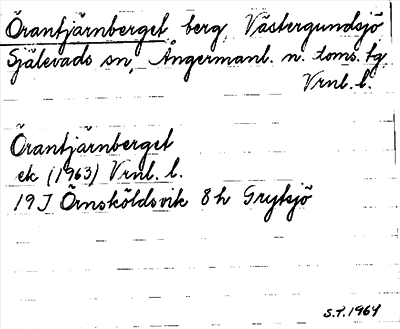 Örantjärnberget, berg, Västergundsjö
Själevads sn, Ångermanl. n. doms. tg
Vrnl. l.
Örantjärnberget
ek (1963) Vrnl. l.
19J Örnsköldsvik 8h Grytsjö
S.P. 1964